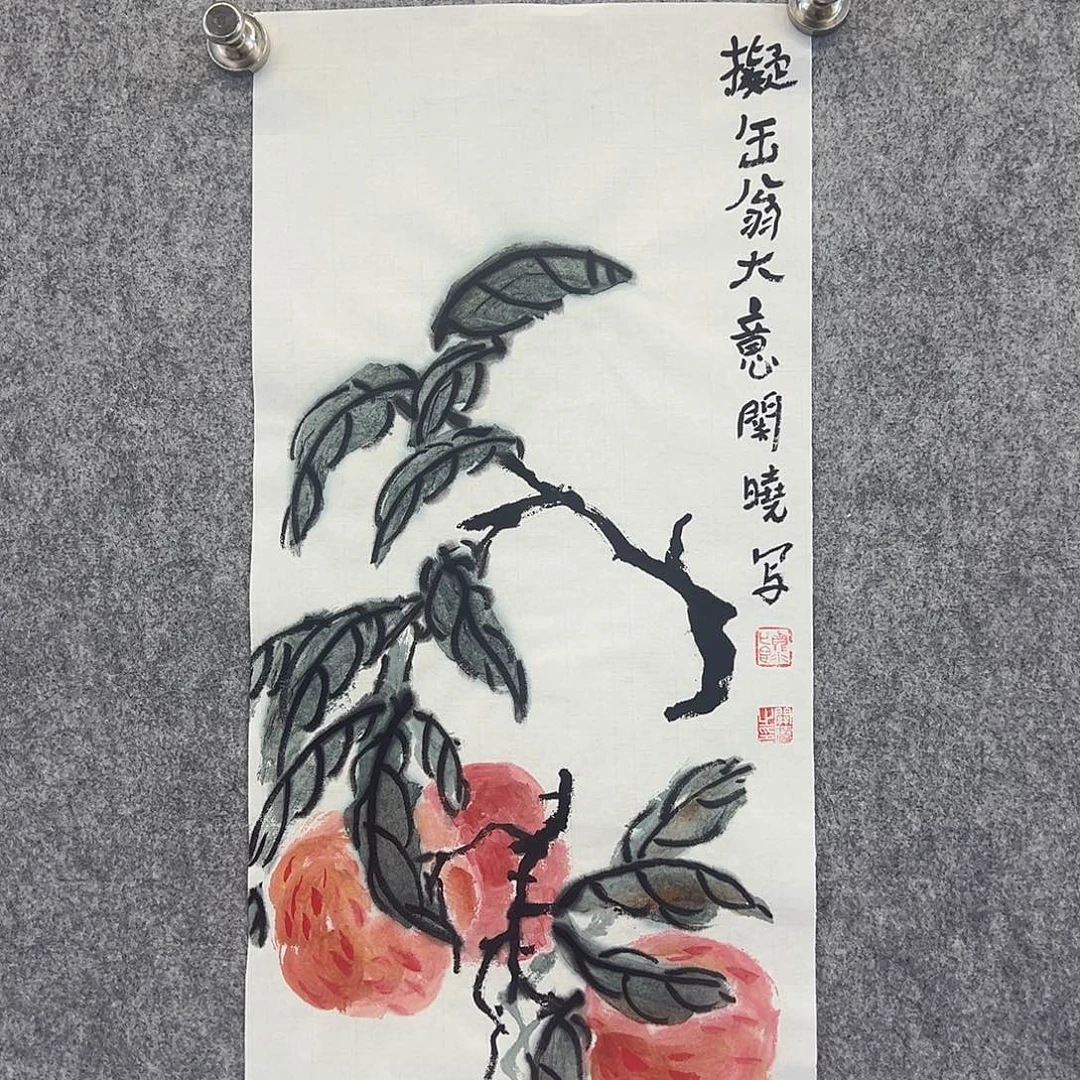 擬缶翁大意閑曉写